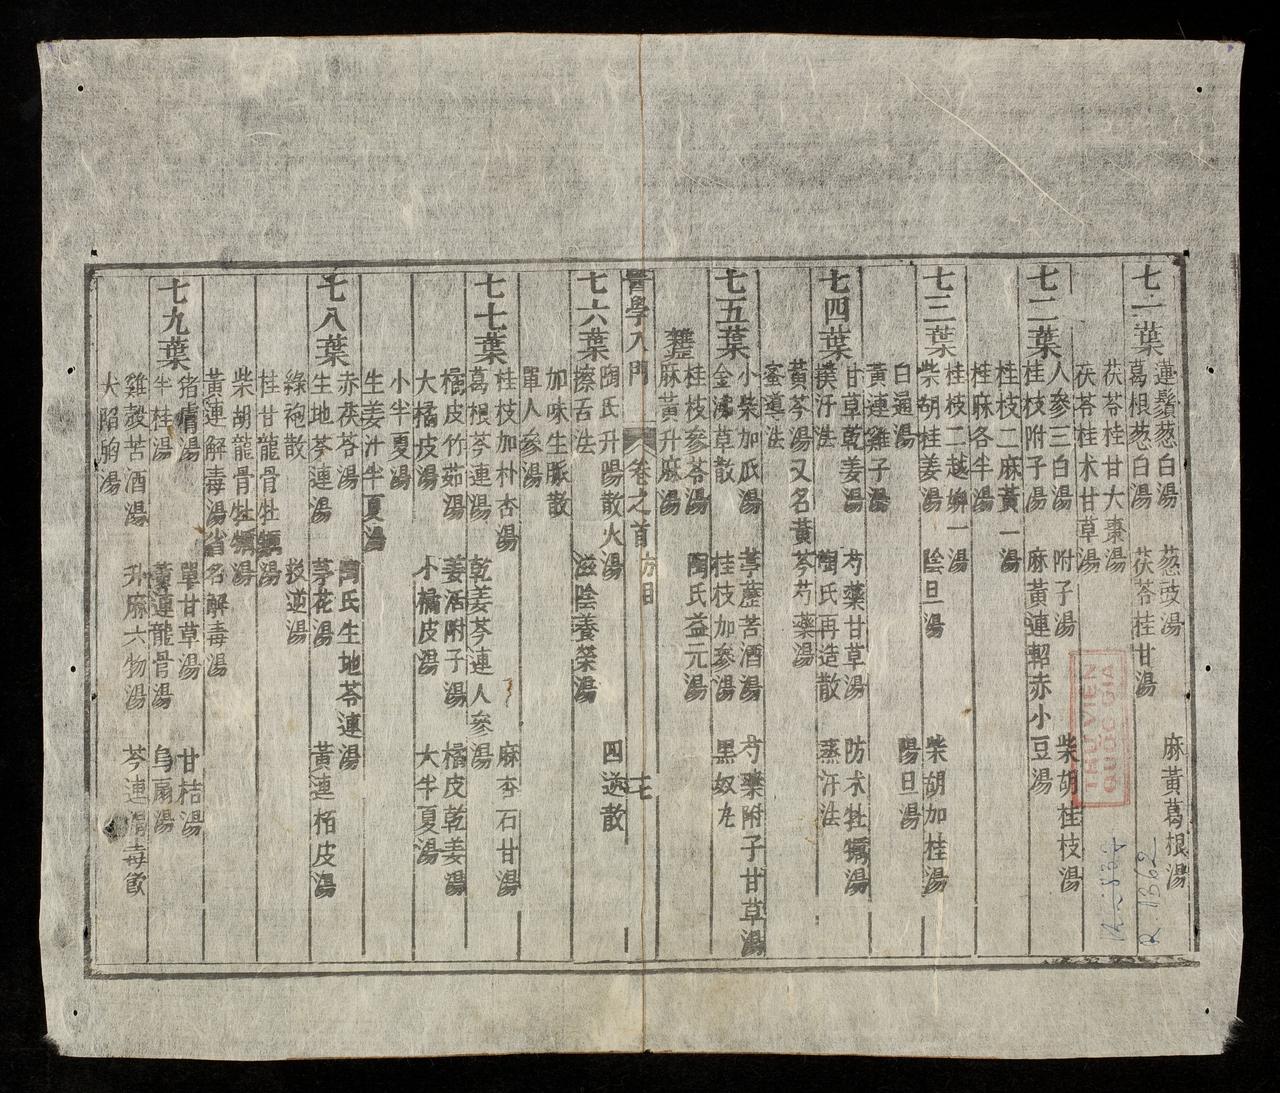 七一葉
蓮鬚葱白湯 葱豉湯 麻黃葛根湯
葛根葱白湯 茯苓桂甘湯
茯苓桂甘大棗湯
茯苓桂朮甘草湯
七二葉
人參三白湯 附子湯 柴胡桂枝湯
桂枝附子湯 麻黃連軺赤小豆湯
桂枝二麻黃一湯
桂麻各半湯
七三葉
桂枝二越婢一湯
柴胡桂姜湯 陰旦湯 柴胡加桂湯
白通湯 陽旦湯
黃連雞子湯
七四葉
甘草乾姜湯 芍藥甘草湯 防朮牡蠣湯
撲汗法 陶氏再造散 蒸汗法
黃芩湯又名黃芩芍藥湯
蜜導法
七五葉
小柴加瓜湯 葶藶苦酒湯 芍藥附子甘草湯
金沸草散 桂枝加參湯 黑奴丸
桂枝參苓湯 陶氏益元湯
麻黃升麻湯
醫學入門 卷之首 方目 三七
七六葉
陶氏升陽散火湯 四逆散
擦舌法 滋陰養榮湯
加味生脈散
單人參湯
七七葉
桂枝加朴杏湯 麻杏石甘湯
葛根芩連湯 乾姜芩連人參湯
橘皮竹茹湯 姜活附子湯 橘皮乾姜湯
大橘皮湯 小橘皮湯 大半夏湯
小半夏湯
生姜汁半夏湯
七八葉
赤茯苓湯 陶氏生地芩連湯
生地芩連湯 茅花湯 黃連栢皮湯
綠袍散 救逆湯
桂甘龍骨牡蠣湯
柴胡龍骨牡蠣湯
黃連解毒湯省名解毒湯
七九葉
猪膚湯 單甘草湯 甘桔湯
半桂湯 黃連龍骨湯 烏扇湯
雞殼苦酒湯 升麻六物湯 芩連消毒飲
大陷胸湯
THU VIEN
QUOC GIA
R.1362